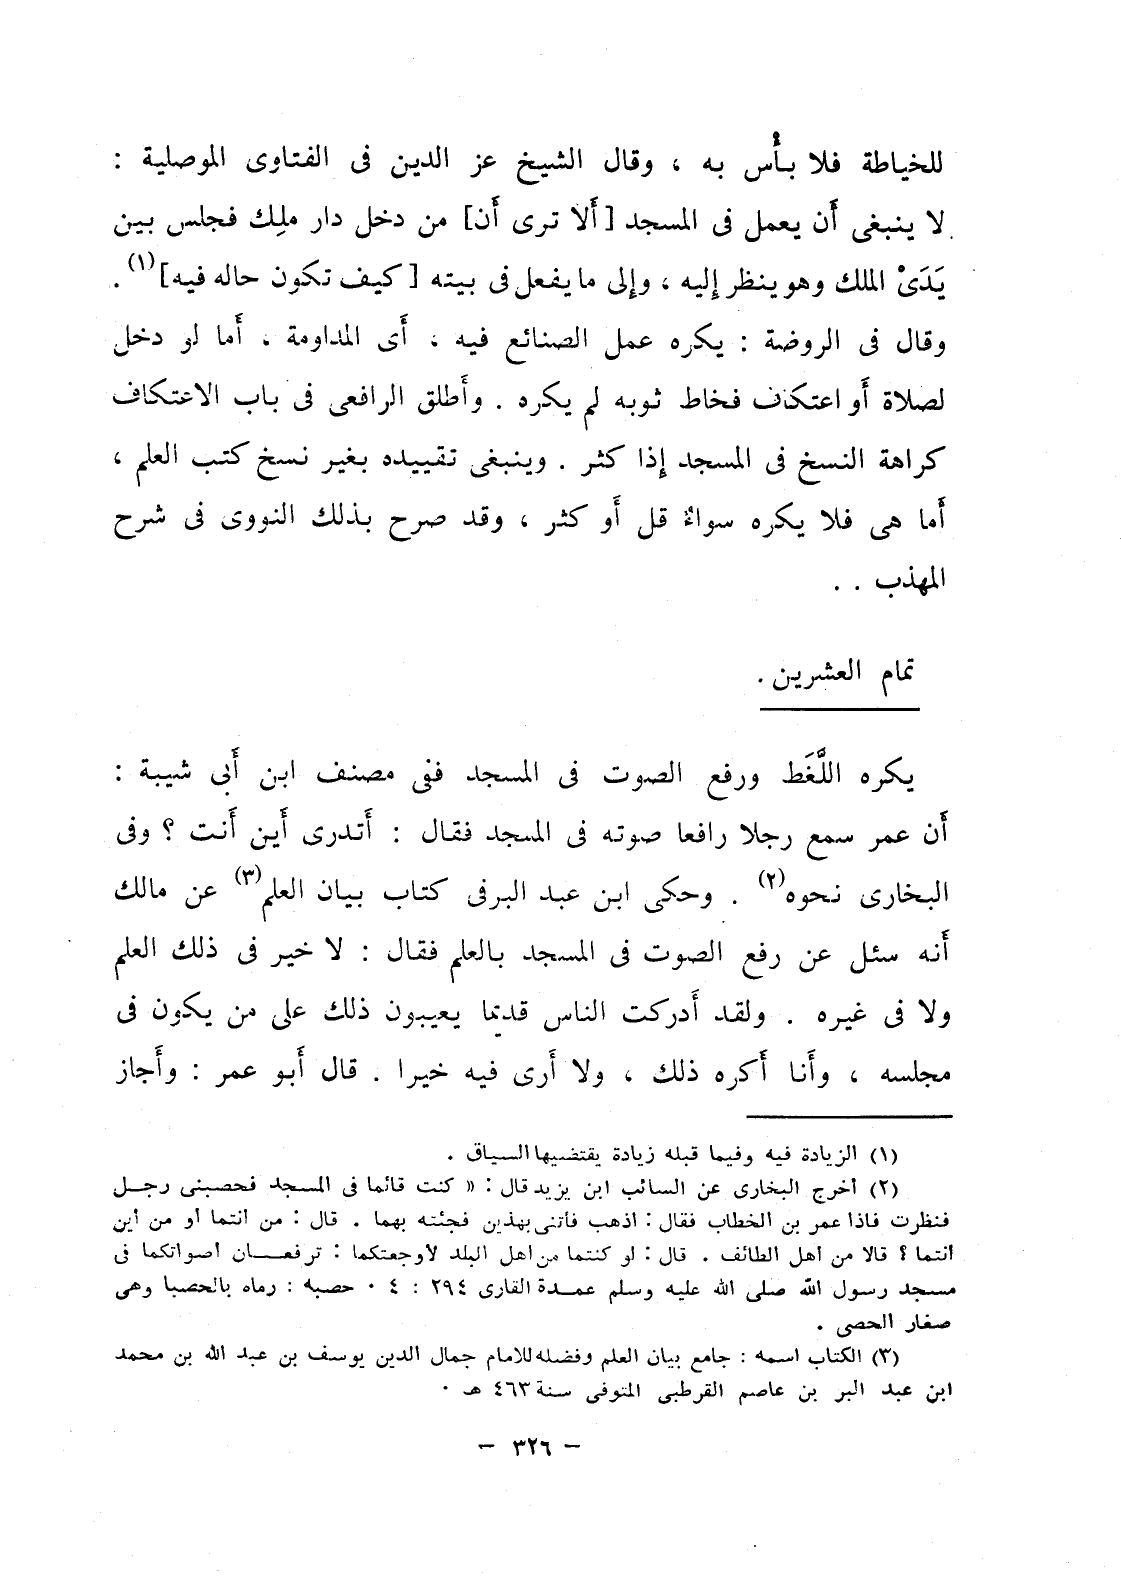 للخياطة فلا بأس به ، وقال الشيخ عز الدين فى الفتاوى الموصلية :
لا ينبغى أن يعمل فى المسجد [ألا ترى أن] من دخل دار ملِك فجلس بين
يَدَىْ الملك وهو ينظر إليه ، وإلى ما يفعل فى بيته [كيف تكون حاله فيه](١) .
وقال فى الروضة : يكره عمل الصنائع فيه ، أى المداومة ، أما لو دخل
لصلاة أو اعتكاف فخاط ثوبه لم يكره . وأطلق الرافعى فى باب الاعتكاف
كراهة النسخ فى المسجد إذا كثر . وينبغى تقييده بغير نسخ كتب العلم ،
أما هى فلا يكره سواءٌ قل أو كثر ، وقد صرح بذلك النووى فى شرح
المهذب . .
تمام العشرين .
يكره اللَّغَط ورفع الصوت فى المسجد ففى مصنف ابن أبى شيبة :
أن عمر سمع رجلا رافعا صوته فى المسجد فقال : أتدرى أين أنت ؟ وفى
البخارى نحوه(٢) . وحكى ابن عبد البر فى كتاب بيان العلم(٣) عن مالك
أنه سئل عن رفع الصوت فى المسجد بالعلم فقال : لا خير فى ذلك العلم
ولا فى غيره . ولقد أدركت الناس قديما يعيبون ذلك على من يكون فى
مجلسه ، وأنا أكره ذلك ، ولا أرى فيه خيرا . قال أبو عمر : وأجاز
(١) الزيادة فيه وفيما قبله زيادة يقتضيها السياق .
(٢) أخرج البخارى عن السائب ابن يزيد قال : « كنت قائما فى المسجد فحصبنى رجل
فنظرت فاذا عمر بن الخطاب فقال : اذهب فأتنى بهذين فجئته بهما . قال : من انتما أو من أين
انتما ؟ قالا من أهل الطائف . قال : لو كنتما من أهل البلد لأوجعتكما : ترفعان أصواتكما فى
مسجد رسول الله صلى الله عليه وسلم عمدة القارى ٢٩٤ : ٤ . حصبه : رماه بالحصبا وهى
صغار الحصى .
(٣) الكتاب اسمه : جامع بيان العلم وفضله للامام جمال الدين يوسف بن عبد الله بن محمد
ابن عبد البر بن عاصم القرطبى المتوفى سنة ٤٦٣ هـ .
– ٣٢٦ –